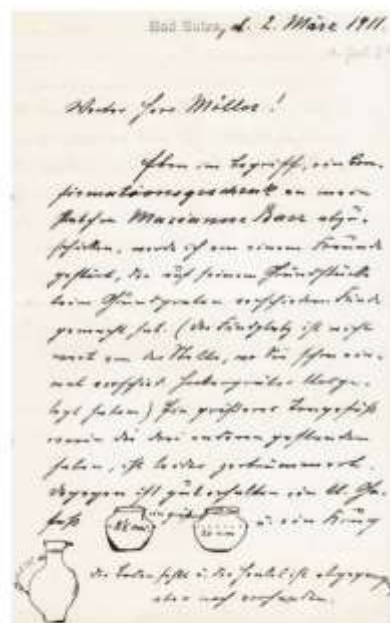 Bad Sulza, d. 2. März 1911.
Werter Herr Möller!
Eben im Begriff, ein Con-
firmationsgeschenk an mein
Patchen Marianne Baer abzu-
schicken, werde ich von einem Freunde
gestört, der auf seinem Grundstücke
beim Grundgraben verschiedene Funde
gemacht hat. (Der Fundplatz ist nicht
weit von der Stelle, wo Sie schon ein-
mal verschied. Hockergräber blosge-
legt haben) Ein größeres Tongefäss
worin die drei anderen gestanden
haben, ist leider zertrümmert.
dagegen ist gut erhalten ein kl. Ge-
fäß ein u. ein Krug
der Boden fehlt u. der Henkel ist abgegangen
aber noch vorhanden.